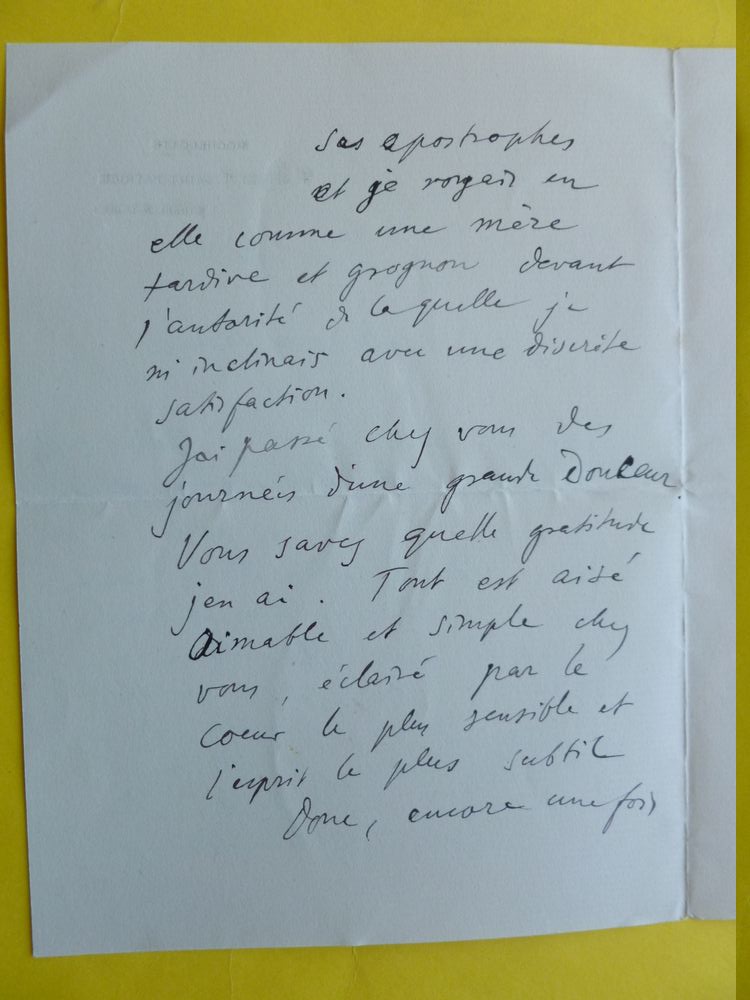 ses apostrophes
et je voyais en
elle comme une mère
tardive et grognon devant
l'autorité de laquelle je
m'inclinais avec une discrète
satisfaction.
J'ai passé chez vous des
journées d'une grande Douceur.
Vous savez quelle gratitude
j'en ai. Tout est aisé
Aimable et simple chez
vous, éclairé par le
coeur le plus sensible et
l'esprit le plus subtil
Donc, encore une fois